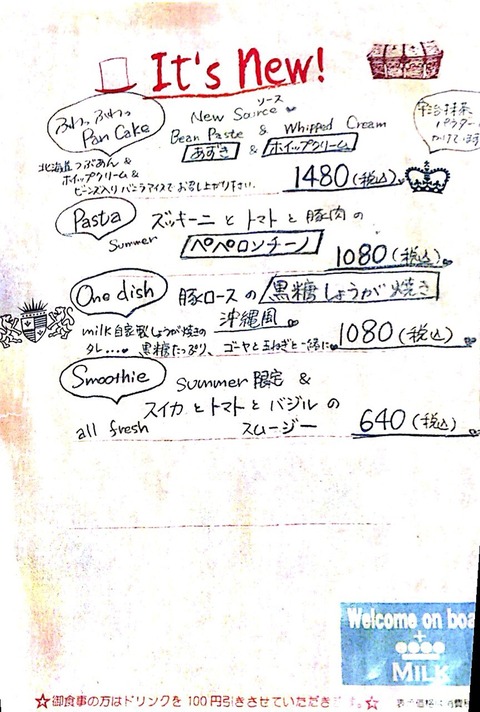 It's New!
ふわっふわっ
Pan Cake
New Source
ソース
Bean Paste & Whipped Cream
あずき & ホイップクリーム
宇治抹茶
パウダー
かけてます
北海道つぶあん &
ホイップクリーム &
ビーンズ入りバニラアイスでお召し上がり下さい。
1480(税込)
Pasta
Summer
ズッキーニとトマトと豚肉の
ペペロンチーノ
1080(税込)
One dish
豚ロースの 黒糖しょうが焼き
沖縄風
milk自家製しょうが焼きの
タレ... 黒糖たっぷり、ゴーヤと玉ねぎと一緒に
1080(税込)
Smoothie
Summer 限定 &
スイカとトマトとバジルの
all fresh スムージー
640(税込)
Welcome on boa
+
MiLK
☆御食事の方はドリンクを100円引きさせていただきます。☆
表示価格は消費税